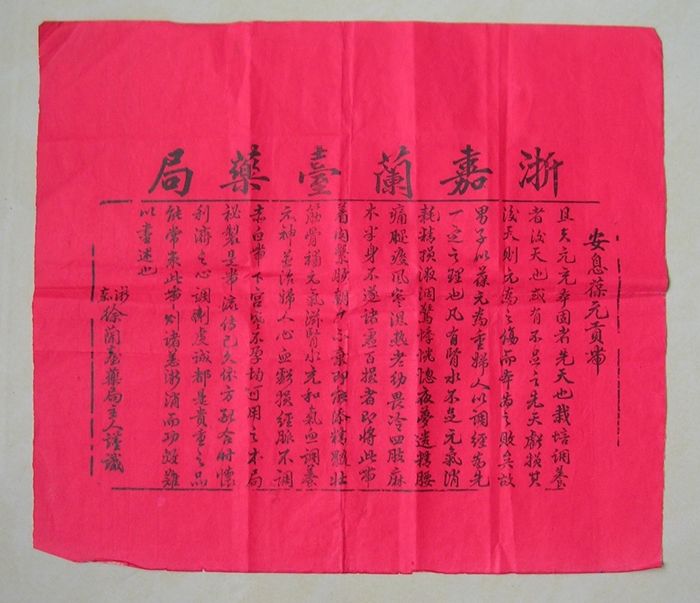 浙嘉蘭臺藥局
安息葆元貢帶
且夫元充本固者先天也栽培調養
者後天也或有不足之先天虧損其
後天則元為之傷而本為之敗矣故
男子以葆元為重婦人以調經為先
一定之理也凡有腎水不足元氣消
耗精損液涸驚悸恍惚夜夢遺精腰
痛腿痠風寒濕熱老幼畏冷四肢麻
木半身不遂諸虛百損者即將此帶
着肉緊繫朝夕不棄即能添精髓壯
筋骨補元氣滋腎水充和氣血調養
元神並治婦人心血虧損經脈不調
赤白帶下宮寒不孕均可用之本局
秘製是帶流傳已久依方配合時懷
利濟之心調制虔誠都是貴重之品
能常束此帶則諸恙漸消而功效難
以盡述也
浙東徐蘭臺藥局主人謹識